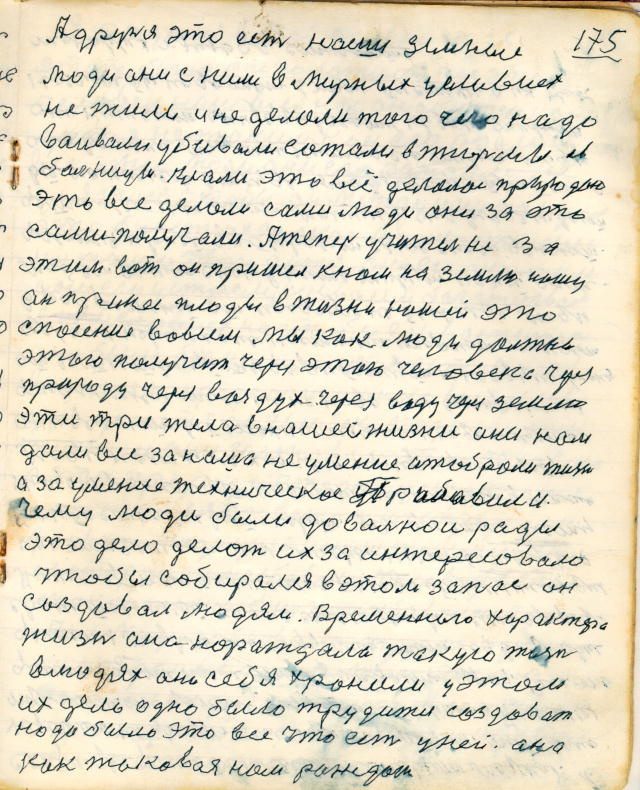 175
А друзя это ест наши земные
люди они с ними в мирных условиех
не жили и не делали того чего надо
ваивали убивали сожали в тюрмы в
болницу. клали это всё делалос природою
это все делали сами люди они за это
сами получали. А теперь учител не за
этим вот он пришел к нам на землю нашу
он принес плоды в жизни нашей это
спосение во всем мы как люди должны
этого получит через этого человека через
природу через воздух через воду через землю
эти три тела в нашей жизни они нам
дали все за наше не умение отобрали жизн
а за умение техническое прибавили.
чему люди были до ваяной рады
это дело делат их за интересовало
чтобы собирался в этом запас он
создовал людям. Временного характера
жизн она нораждала такую жизн
в людях они себя хронили у этом
их дело одно было трудится создоват
надо было это все что ест у ней. она
как таковая нам рождат